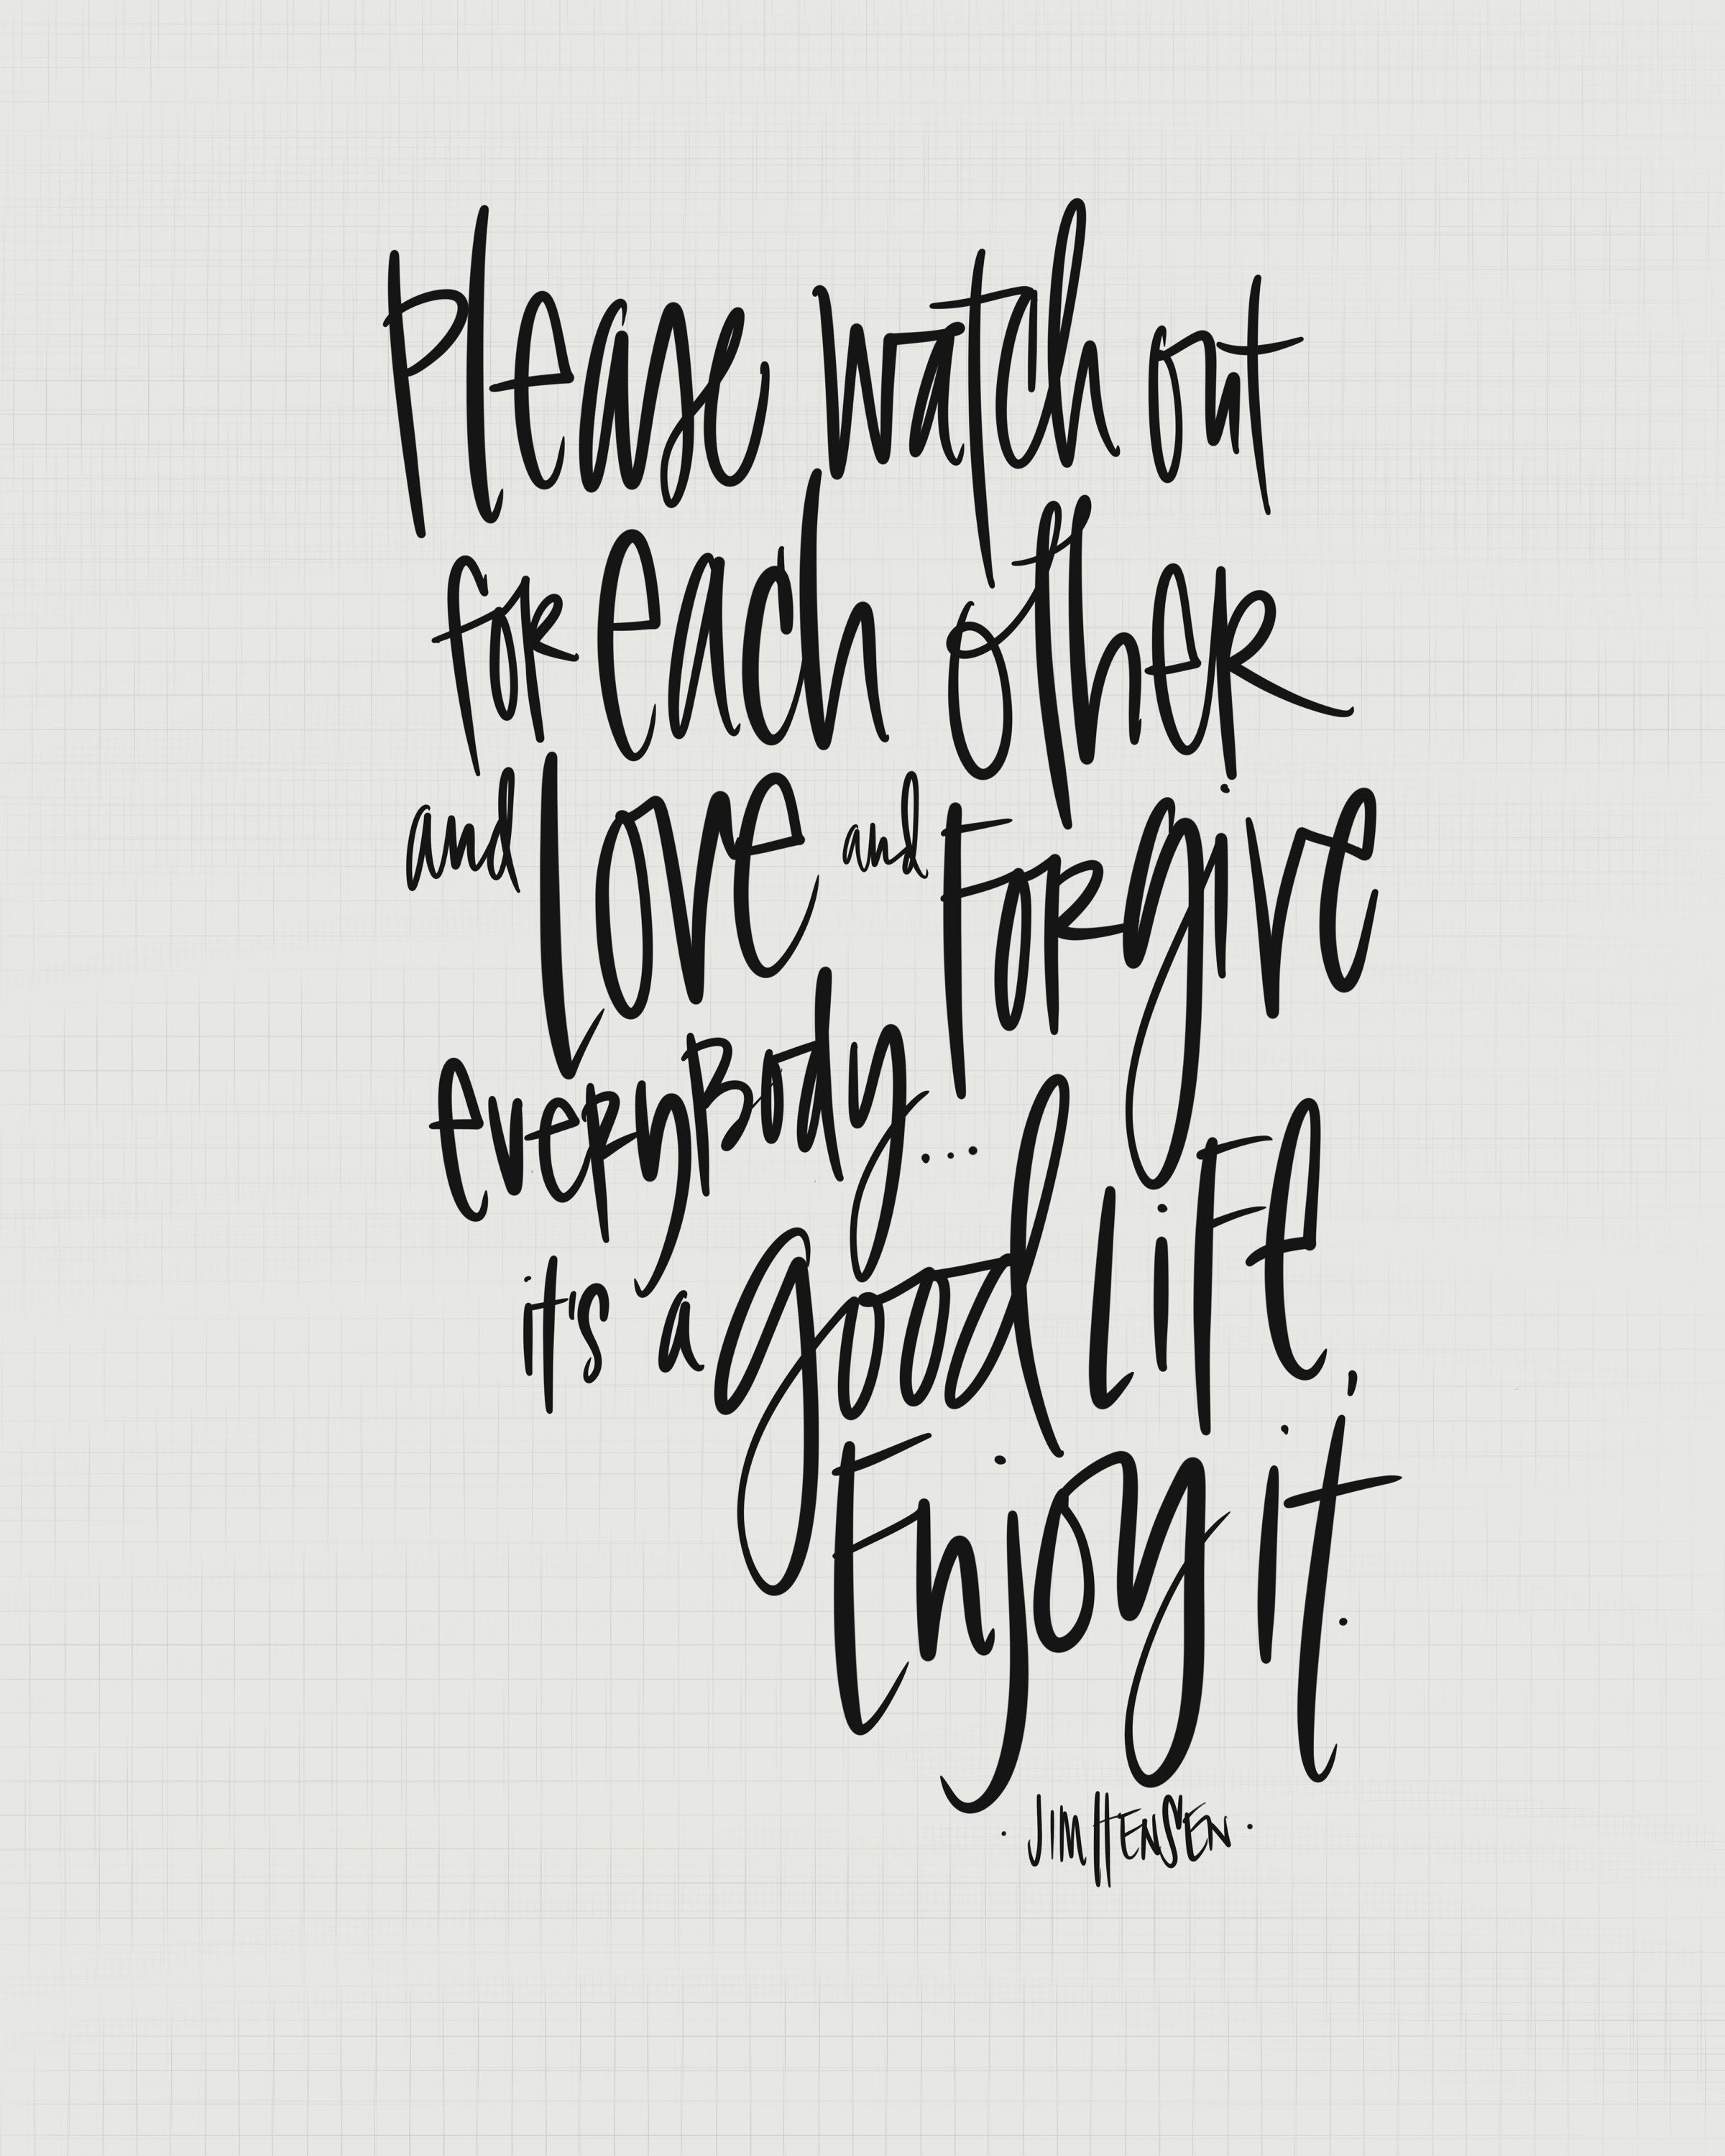 Please watch out
for each other
and Love and Forgive
everyBody...
it's a good LiFe,
Enjoy it.
· JIM HENSEN ·